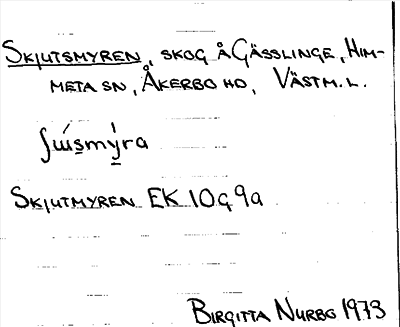 SKJUTSMYREN, SKOG Å GÄSSLINGE, HIM-
META SN, ÅKERBO HD, VÄSTM. L.
ʃɯ́smýra
SKJUTMYREN EK 10G9a
BIRGITTA NURBO 1973